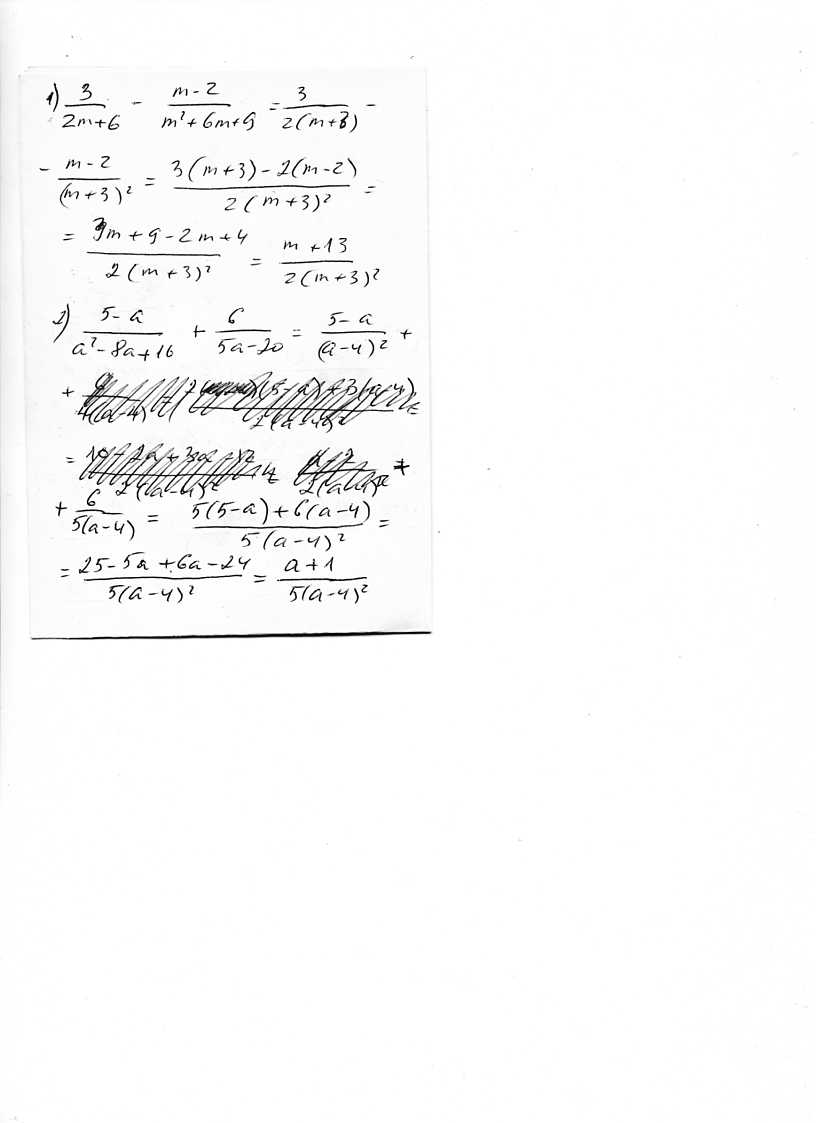 1) 3/(2m+6) - (m-2)/(m²+6m+9) = 3/(2(m+3)) -
- (m-2)/(m+3)² = (3(m+3)-2(m-2))/(2(m+3)²) =
= (3m+9-2m+4)/(2(m+3)²) = (m+13)/(2(m+3)²)
2) (5-a)/(a²-8a+16) + 6/(5a-20) = (5-a)/(a-4)² +
+ 6/(5(a-4)) = (5(5-a)+6(a-4))/(5(a-4)²) =
= (25-5a+6a-24)/(5(a-4)²) = (a+1)/(5(a-4)²)